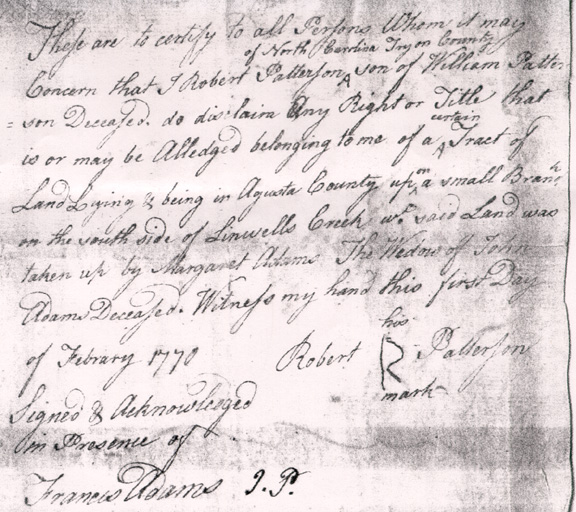 These are to certify to all Persons Whom it may
of North Carolina Tryon County
Concern that I Robert Patterson ^ son of William Patter
= son Deceased. do disclaim any Right or Title that
certain
is or may be Alledged belonging to me of a ^ Tract of
on
Land Lying & being in Agusta County up ^ a small Branh
on the south side of Linwells Creek wh. said Land was
taken up by Margaret Adams The Wedow of John
Adams Deceased. Witness my hand this first Day
of Febrary 1770 Robert his R mark Patterson
Signed & Acknowledged
in Presence of
Francis Adams J.P.